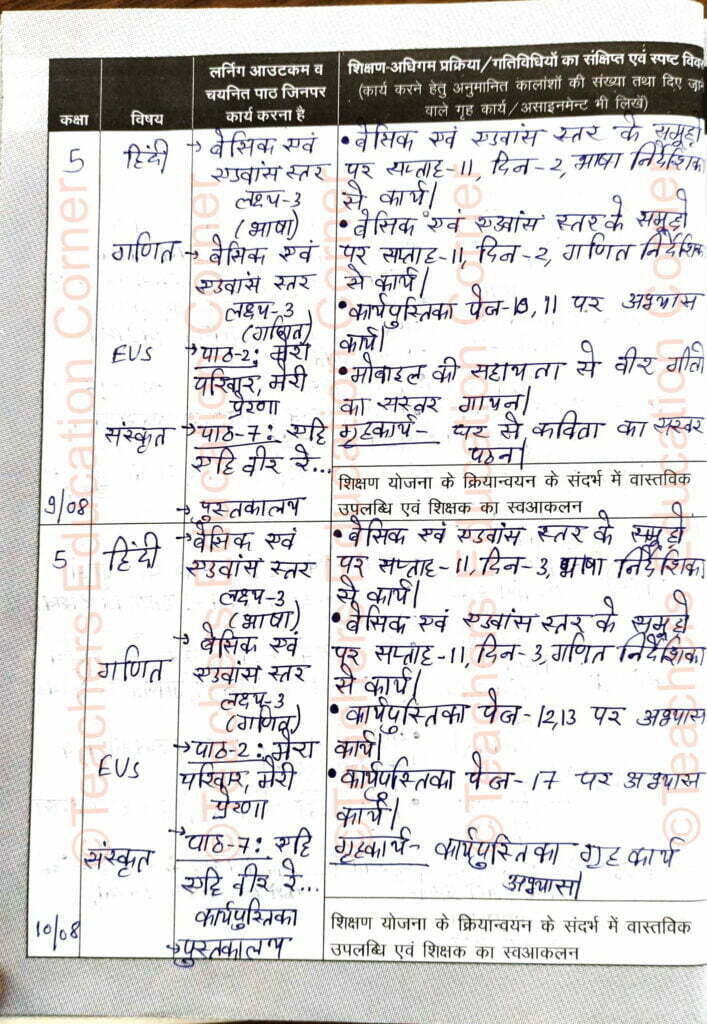 कक्षा
विषय
लर्निंग आउटकम व
चयनित पाठ जिनपर
कार्य करना है
शिक्षण-अधिगम प्रक्रिया/गतिविधियों का संक्षिप्त एवं स्पष्ट
(कार्य करने हेतु अनुमानित कालांशों की संख्या तथा दिए
वाले गृह कार्य/असाइनमेंट भी लिखें)
5
हिंदी
→ बेसिक एवं
एडवांस स्तर
लक्ष्य-3
(भाषा)
• बेसिक एवं एडवांस स्तर के समूहों
पर सप्ताह-11, दिन-2, भाषा निर्देशिका
से कार्य।
गणित
→ बेसिक एवं
एडवांस स्तर
लक्ष्य-3
(गणित)
• बेसिक एवं एडवांस स्तर के समूहों
पर सप्ताह-11, दिन-2, गणित निर्देशिका
से कार्य।
EVS
→ पाठ-2: मेरा
परिवार, मेरी
प्रेरणा
• कार्यपुस्तिका पेज-10, 11 पर अभ्यास
कार्य।
संस्कृत
→ पाठ-7: एहि
एहि वीर रे...
→ पुस्तकालय
• मोबाइल की सहायता से वीर गीतों
का सस्वर गायन।
गृहकार्य- घर से कविता का सस्वर
पठन।
9/08
शिक्षण योजना के क्रियान्वयन के संदर्भ में वास्तविक
उपलब्धि एवं शिक्षक का स्वआकलन
5
हिंदी
→ बेसिक एवं
एडवांस स्तर
लक्ष्य-3
(भाषा)
• बेसिक एवं एडवांस स्तर के समूहों
पर सप्ताह-11, दिन-3, भाषा निर्देशिका
से कार्य।
गणित
→ बेसिक एवं
एडवांस स्तर
लक्ष्य-3
(गणित)
• बेसिक एवं एडवांस स्तर के समूहों
पर सप्ताह-11, दिन-3, गणित निर्देशिका
से कार्य।
EVS
→ पाठ-2: मेरा
परिवार, मेरी
प्रेरणा
• कार्यपुस्तिका पेज-12,13 पर अभ्यास
कार्य।
संस्कृत
→ पाठ-7: एहि
एहि वीर रे...
कार्यपुस्तिका
→ पुस्तकालय
• कार्यपुस्तिका पेज-17 पर अभ्यास
कार्य।
गृहकार्य- कार्यपुस्तिका गृह कार्य
अभ्यास।
10/08
शिक्षण योजना के क्रियान्वयन के संदर्भ में वास्तविक
उपलब्धि एवं शिक्षक का स्वआकलन
©Teachers Education Corner
©Teachers Education Corner
©Teachers Education Corner
©Teachers Education Corner
©Teachers Education Corner